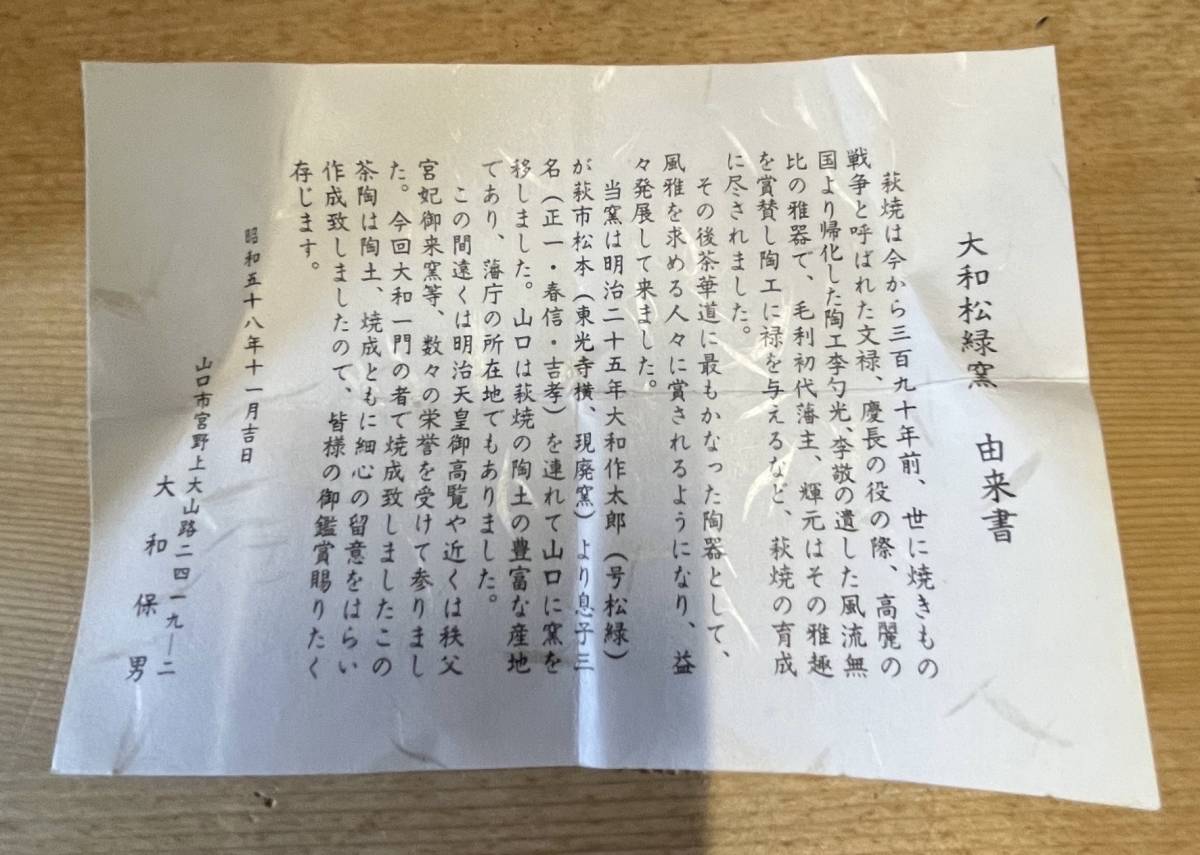 大和松緑窯　由来書
萩焼は今から三百九十年前、世に焼きもの
戦争と呼ばれた文禄、慶長の役の際、高麗の
国より帰化した陶工李勺光、李敬の遺した風流無
比の雅器で、毛利初代藩主、輝元はその雅趣
を賞賛し陶工に禄を与えるなど、萩焼の育成
に尽されました。
その後茶華道に最もかなった陶器として、
風雅を求める人々に賞されるようになり、益
々発展して来ました。
当窯は明治二十五年大和作太郎（号松緑）
が萩市松本（東光寺横、現廃窯）より息子三
名（正一・春信・吉孝）を連れて山口に窯を
移しました。山口は萩焼の陶土の豊富な産地
であり、藩庁の所在地でもありました。
この間遠くは明治天皇御高覧や近くは秩父
宮妃御来窯等、数々の栄誉を受けて参りまし
た。今回大和一門の者で焼成致しましたこの
茶陶は陶土、焼成ともに細心の留意をはらい
作成致しましたので、皆様の御鑑賞賜りたく
存じます。
昭和五十八年十一月吉日
山口市宮野上大山路二四一九―二
大和保男